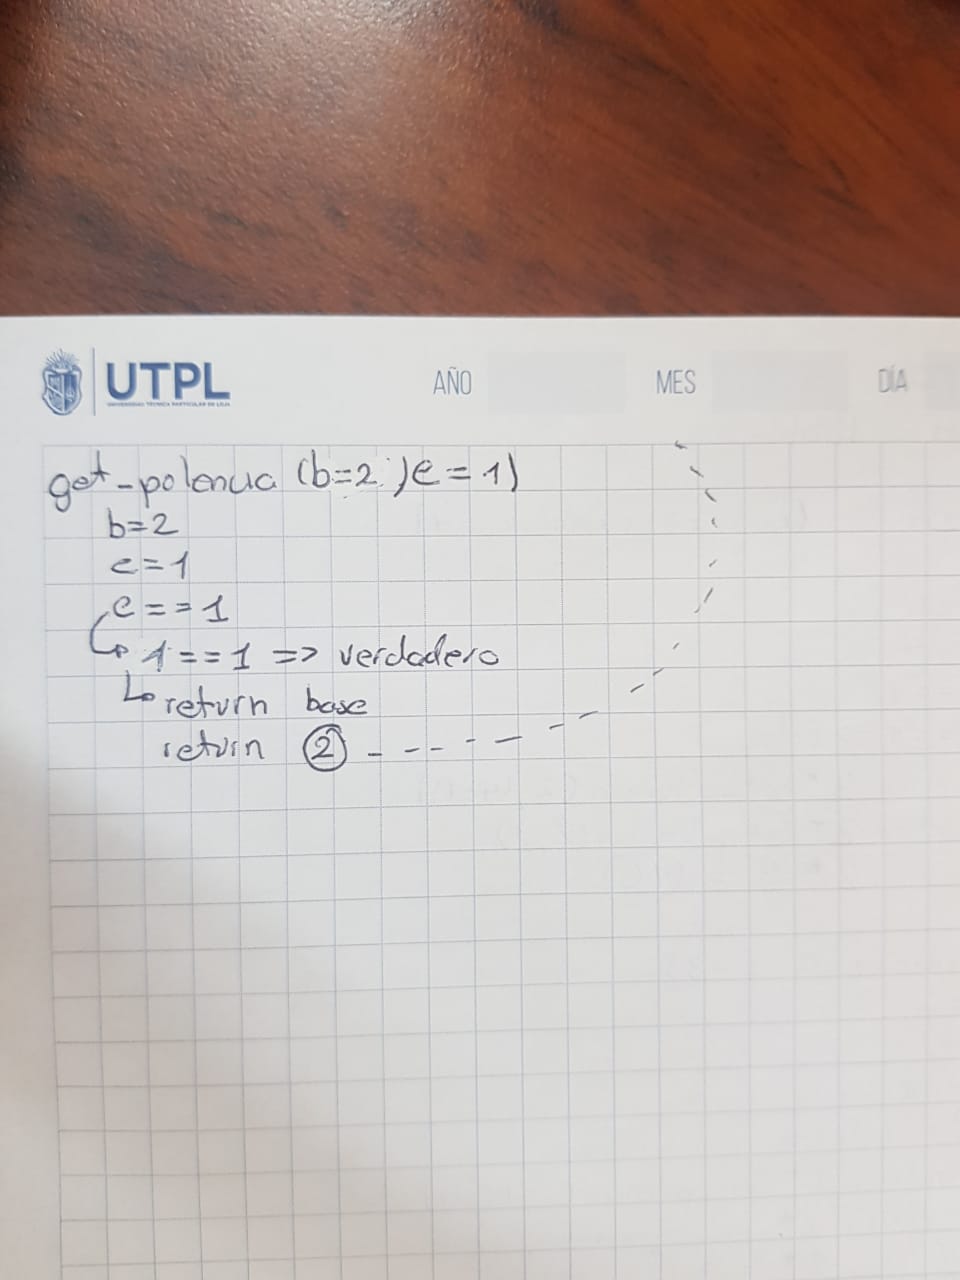 UTPL
UNIVERSIDAD TÉCNICA PARTICULAR DE LOJA
AÑO MES DÍA
get-potencia (b=2, e=1)
b=2
e=1
e==1
1==1 => verdadero
return base
return 2